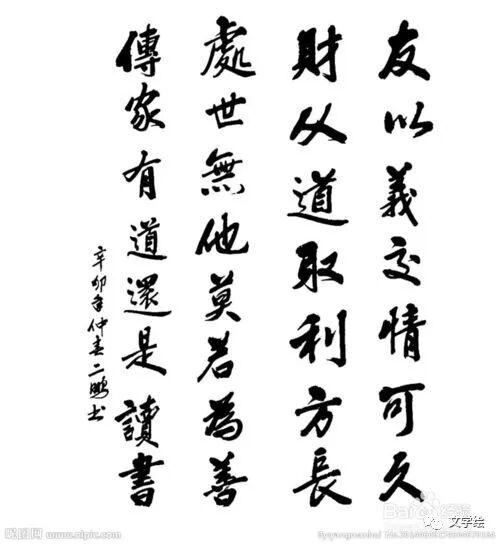 友以義交情可久
財从道取利方長
處世無他莫若為善
傳家有道還是讀書
辛卯年仲春二鵬书
昵图网 www.nipic.com
Baidu
文字绘